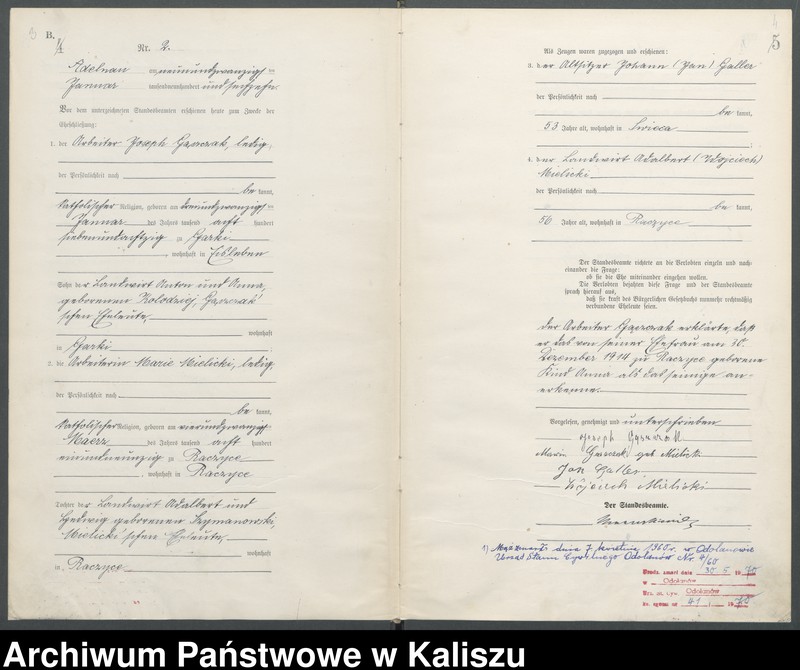 B.
Nr. 2.
Adelnau am neunundzwanzigsten
Januar tausendneunhundert und sechzehn.
Vor dem unterzeichneten Standesbeamten erschienen heute zum Zwecke der
Eheschließung:
1. der Arbeiter Joseph Gąszczak, ledig,
der Persönlichkeit nach
be kannt,
katholischer Religion, geboren am dreiundzwanzigsten
Januar des Jahres tausend acht hundert
siebenundachtzig zu Garki
, wohnhaft in Eisleben
Sohn der Landwirt Anton und Anna,
geborenen Kolodziej,
schen Eheleute,
wohnhaft
in Garki
2. die Arbeiterin Marie Mielicki, ledig,
der Persönlichkeit nach
be kannt,
katholischer Religion, geboren am vierundzwanzigsten
Maerz des Jahres tausend acht hundert
einundneunzig zu Raczyce
, wohnhaft in Raczyce
Tochter der Landwirt Adalbert und
Hedwig geborenen Szymanowski,
Mielicki'schen Eheleute,
wohnhaft
in Raczyce
5
Als Zeugen waren zugezogen und erschienen:
3. der Altsitzer Johann (Jan) Galler
der Persönlichkeit nach
be kannt,
53 Jahre alt, wohnhaft in Swieca
;
4. der Landwirt Adalbert (Wojciech)
Mielicki
der Persönlichkeit nach
be kannt,
56 Jahre alt, wohnhaft in Raczyce
Der Standesbeamte richtete an die Verlobten einzeln und nach-
einander die Frage:
ob sie die Ehe miteinander eingehen wollen.
Die Verlobten bejahten diese Frage und der Standesbeamte
sprach hierauf aus,
daß sie kraft des Bürgerlichen Gesetzbuchs nunmehr rechtmäßig
verbundene Eheleute seien.
Der Arbeiter erklärte, daß
er das von seiner Ehefrau am 30.
Dezember 1914 zu Raczyce geborene
Kind Anna als das seinige an-
erkenne.
Vorgelesen, genehmigt und unterschrieben
Joseph
Marie geb Mielicki
Jan Galler
Wojciech Mielicki
Der Standesbeamte.
1) dnia 7 kwietnia 1960 r. w Odolanowie
Urząd Stanu Cywilnego Odolanów Nr. 9/60
zmarł dnia 30. 5 1970
w Odolanów
Odolanów
41 1970
Archiwum Państwowe w Kaliszu